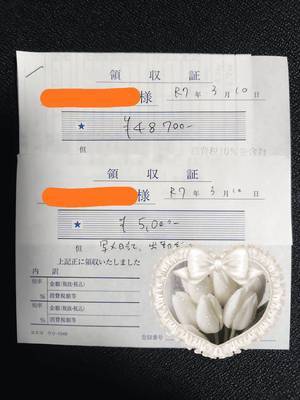 領収証
様 R7年3月10日
★ ¥48700-
但
領収証
様 R7年3月10日
★ ¥5,000-
但
上記正に領収いたしました
内 訳
税率 金額(税抜・税込)
% 消費税額等
税率 金額(税抜・税込)
% 消費税額等
登録番号